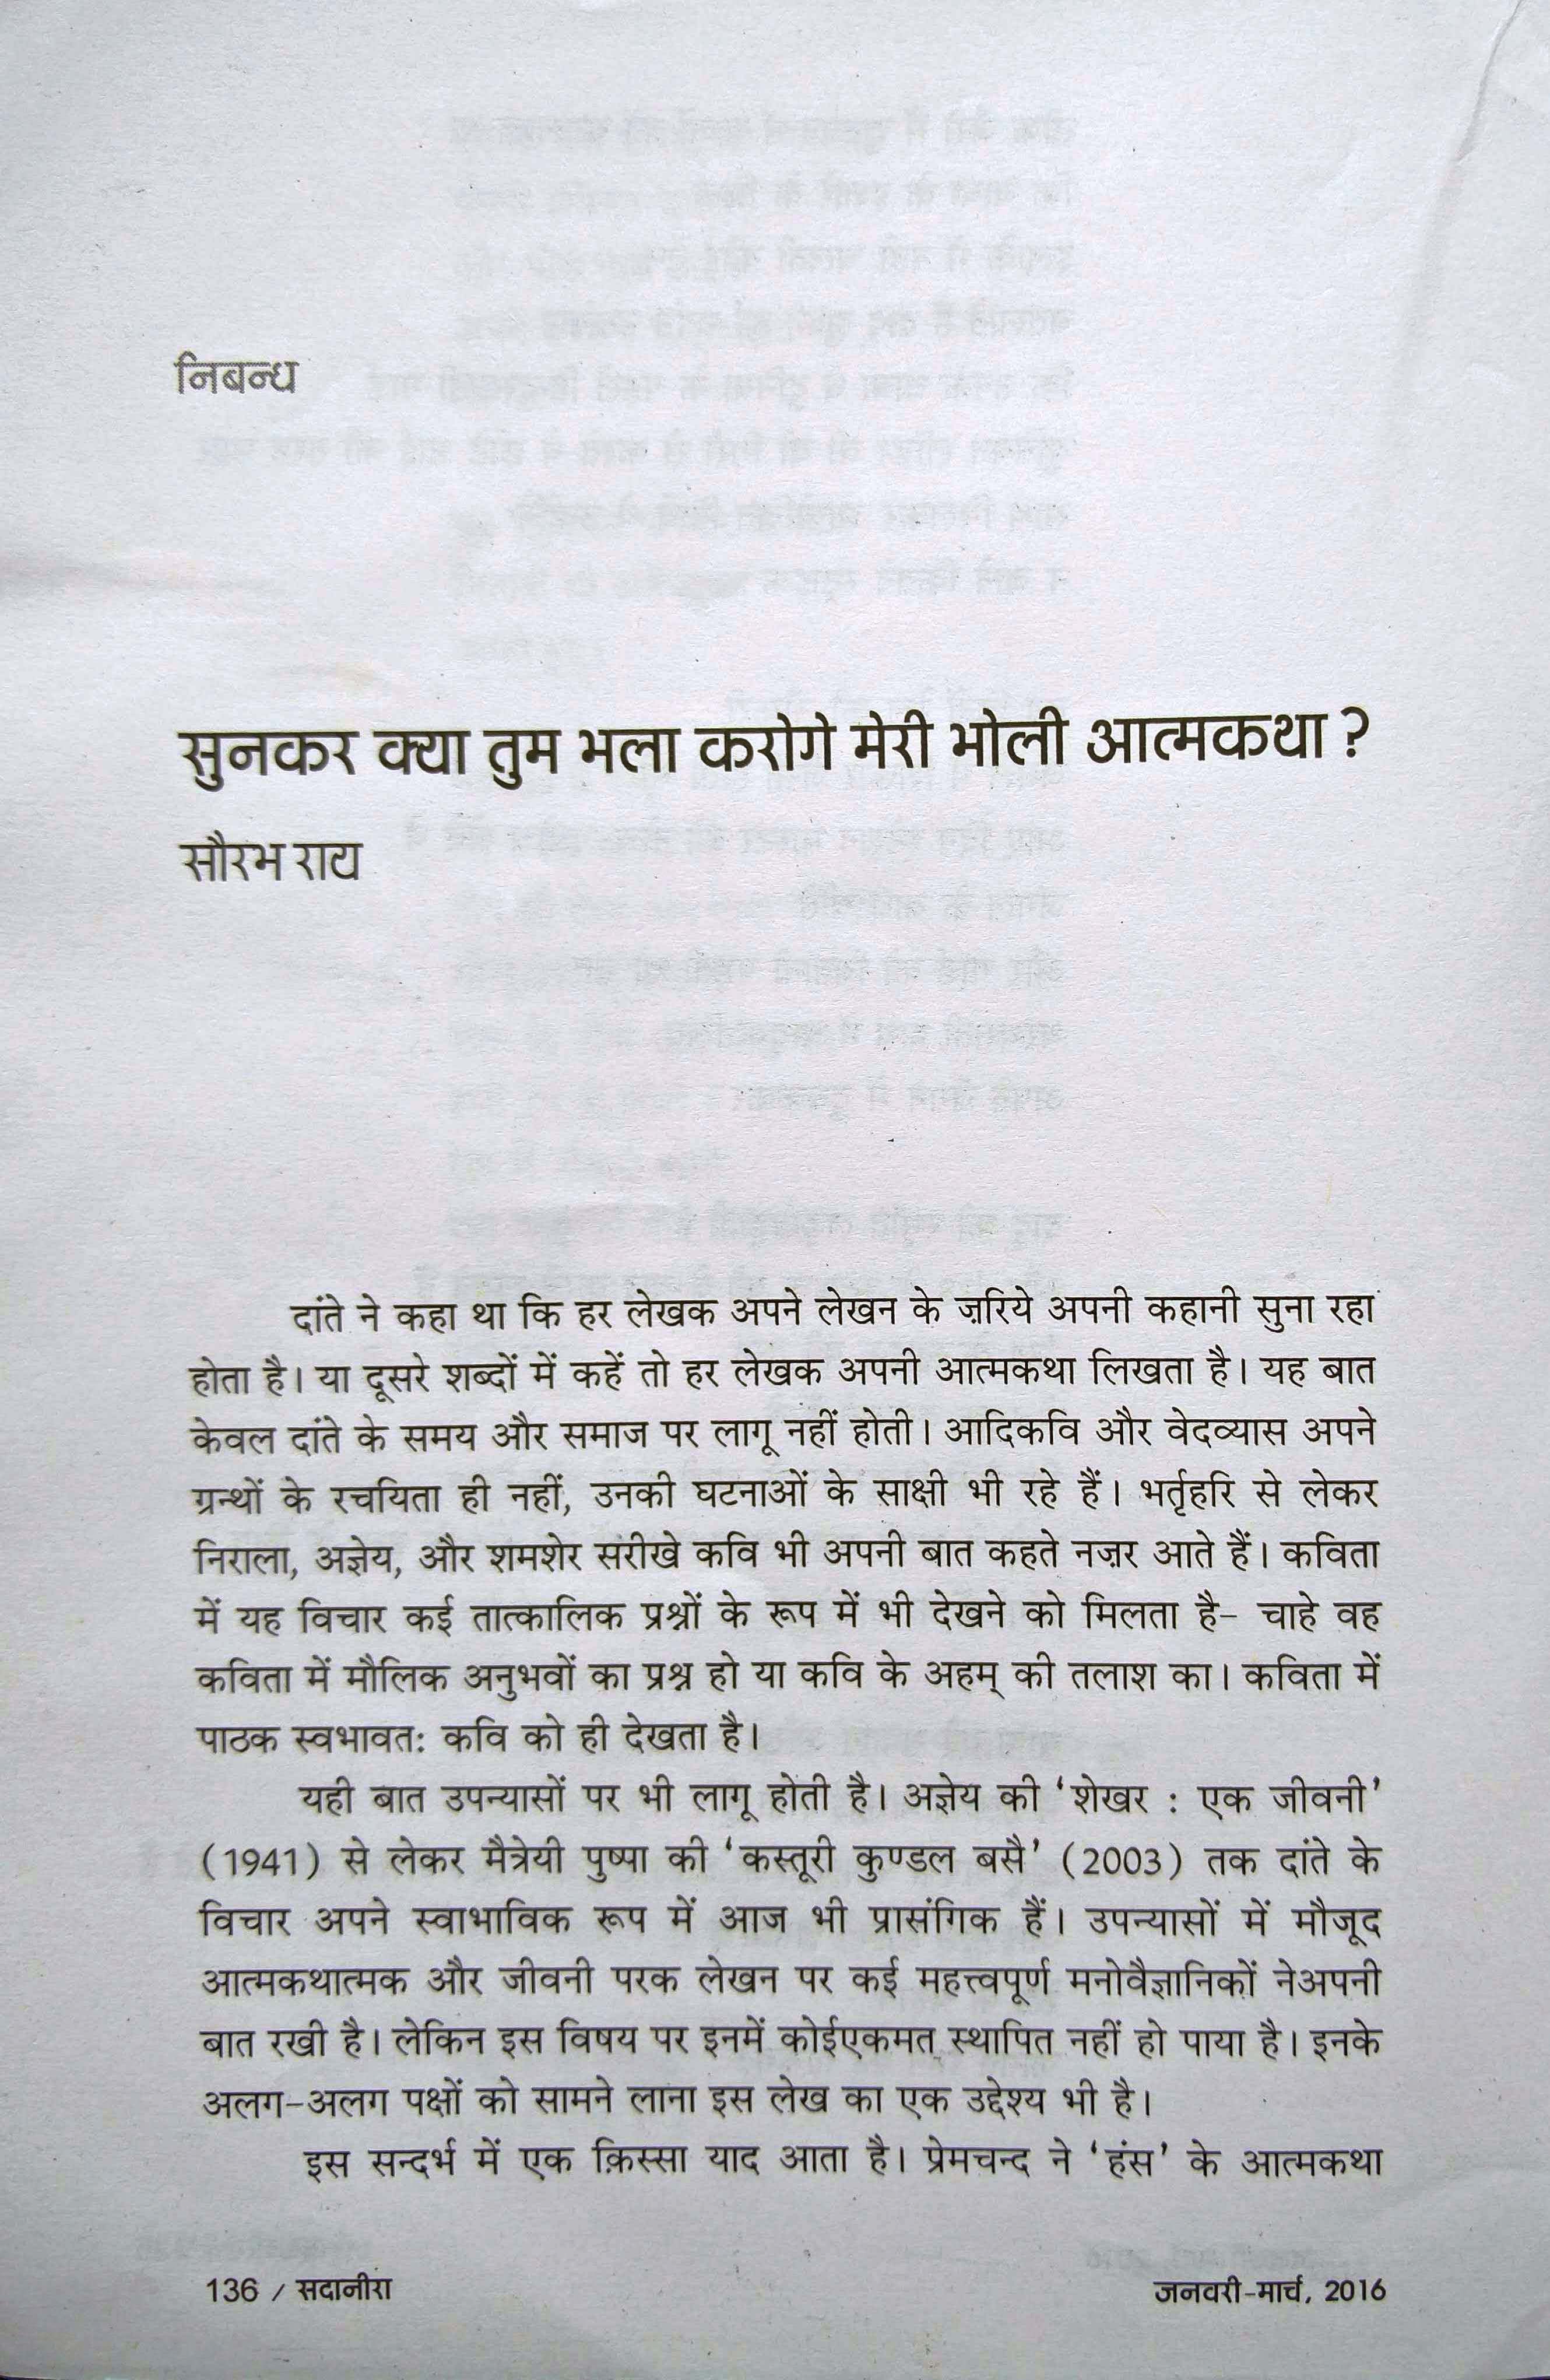 निबन्ध
सुनकर क्या तुम भला करोगे मेरी भोली आत्मकथा ?
सौरभ राय
दांते ने कहा था कि हर लेखक अपने लेखन के ज़रिये अपनी कहानी सुना रहा
होता है। या दूसरे शब्दों में कहें तो हर लेखक अपनी आत्मकथा लिखता है। यह बात
केवल दांते के समय और समाज पर लागू नहीं होती। आदिकवि और वेदव्यास अपने
ग्रन्थों के रचयिता ही नहीं, उनकी घटनाओं के साक्षी भी रहे हैं। भर्तृहरि से लेकर
निराला, अज्ञेय, और शमशेर सरीखे कवि भी अपनी बात कहते नज़र आते हैं। कविता
में यह विचार कई तात्कालिक प्रश्नों के रूप में भी देखने को मिलता है- चाहे वह
कविता में मौलिक अनुभवों का प्रश्न हो या कवि के अहम् की तलाश का। कविता में
पाठक स्वभावत: कवि को ही देखता है।
यही बात उपन्यासों पर भी लागू होती है। अज्ञेय की ‘शेखर : एक जीवनी’
(1941) से लेकर मैत्रेयी पुष्पा की ‘कस्तूरी कुण्डल बसै’ (2003) तक दांते के
विचार अपने स्वाभाविक रूप में आज भी प्रासंगिक हैं। उपन्यासों में मौजूद
आत्मकथात्मक और जीवनी परक लेखन पर कई महत्त्वपूर्ण मनोवैज्ञानिकों नेअपनी
बात रखी है। लेकिन इस विषय पर इनमें कोईएकमत स्थापित नहीं हो पाया है। इनके
अलग-अलग पक्षों को सामने लाना इस लेख का एक उद्देश्य भी है।
इस सन्दर्भ में एक क़िस्सा याद आता है। प्रेमचन्द ने ‘हंस’ के आत्मकथा
136 / सदानीरा
जनवरी-मार्च, 2016